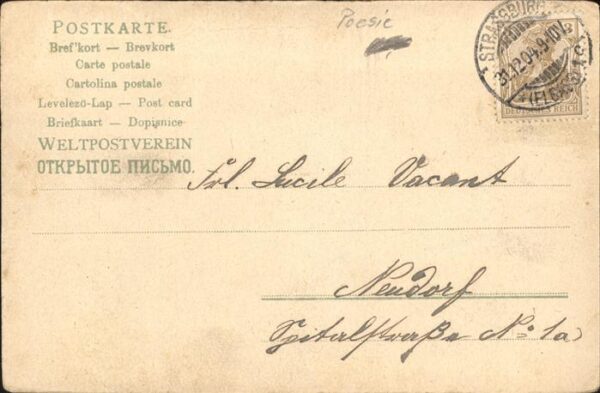 Poesie
POSTKARTE.
Bref'kort — Brevkort
Carte postale
Cartolina postale
Levelező-Lap — Post card
Briefkaart — Dopisnice
WELTPOSTVEREIN
ОТКРЫТОЕ ПИСЬМО.
STRASSBURG
31.12.04.9-10V.
(ELS.)
3
DEUTSCHES REICH
Frl. Lucile Vacant
Neudorf
Spitalstraße No 1a)